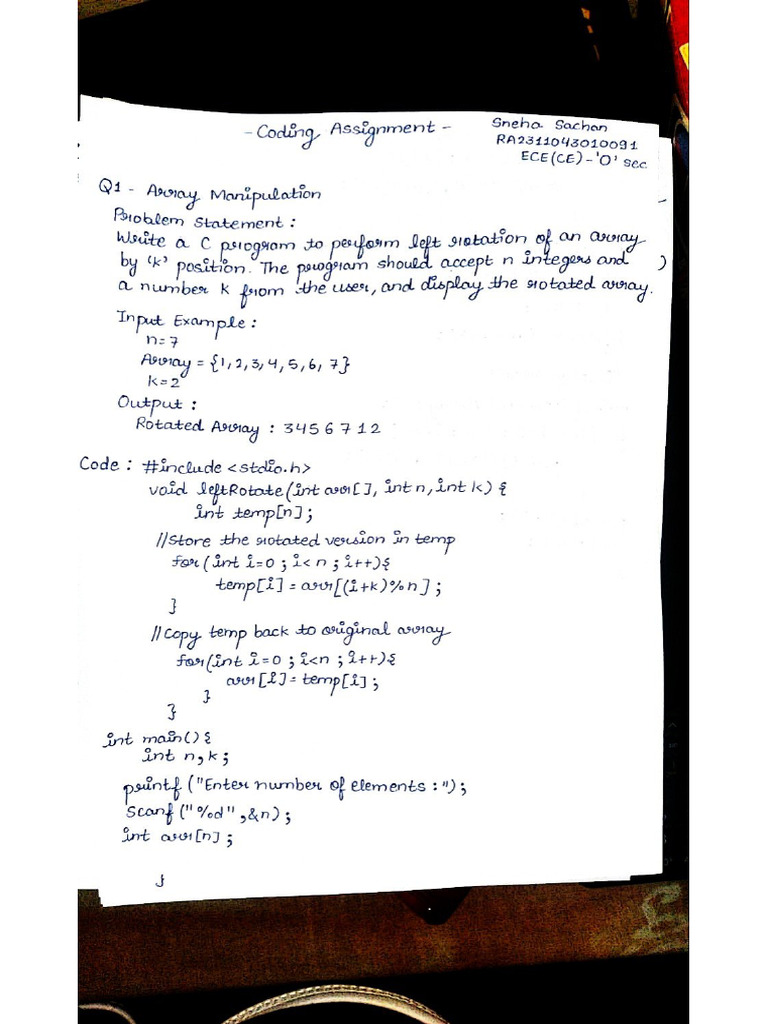 - Coding Assignment -
Sneha Sachan
RA2311043010091
ECE(CE)-'O' sec
Q1 - Array Manipulation
Problem Statement :
Write a C program to perform left rotation of an array
by 'k' position. The program should accept n integers and
a number k from the user, and display the rotated array.
Input Example :
n=7
Array = {1,2,3,4,5,6,7}
k=2
Output :
Rotated Array : 3 4 5 6 7 1 2
Code : #include <stdio.h>
void leftRotate(int arr[], int n, int k) {
int temp[n];
//Store the rotated version in temp
for(int i=0 ; i<n ; i++){
temp[i] = arr[(i+k)%n];
}
//Copy temp back to original array
for(int i=0 ; i<n ; i++){
arr[i] = temp[i];
}
}
int main() {
int n,k;
printf("Enter number of elements :");
scanf("%d",&n);
int arr[n];
}